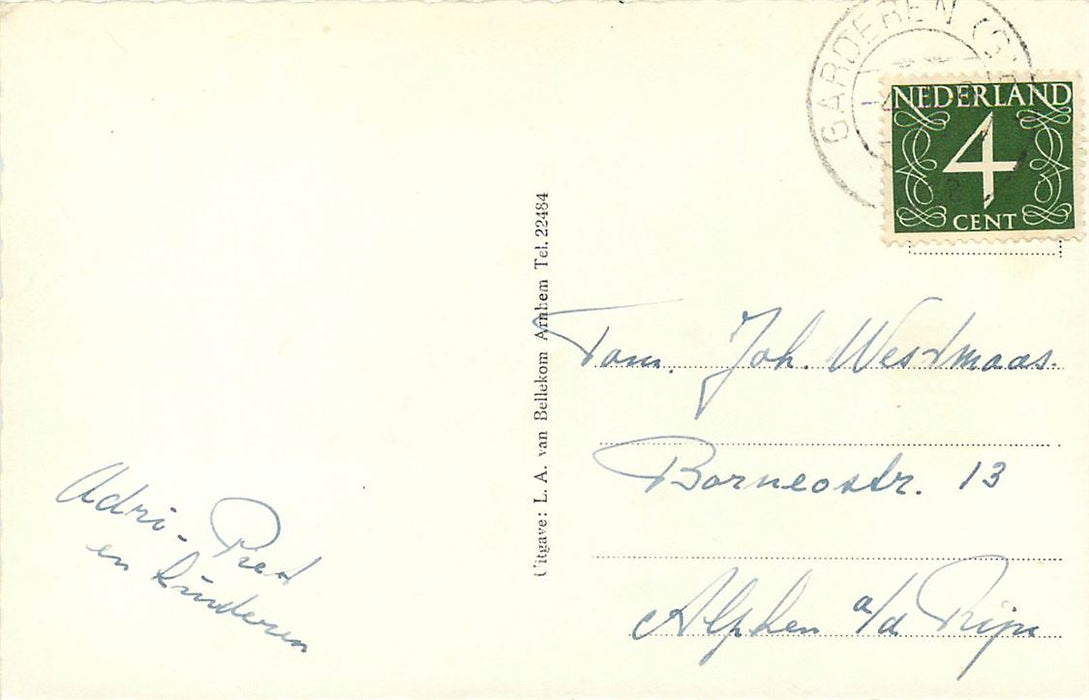 GARDEREN (G
NEDERLAND
4
CENT
Uitgave: L. A. van Bellekom Arnhem Tel. 22484
Fam. Joh. Westmaas.
Borneostr. 13
Alphen a/d Rijn
Adri - Piet
en kinderen